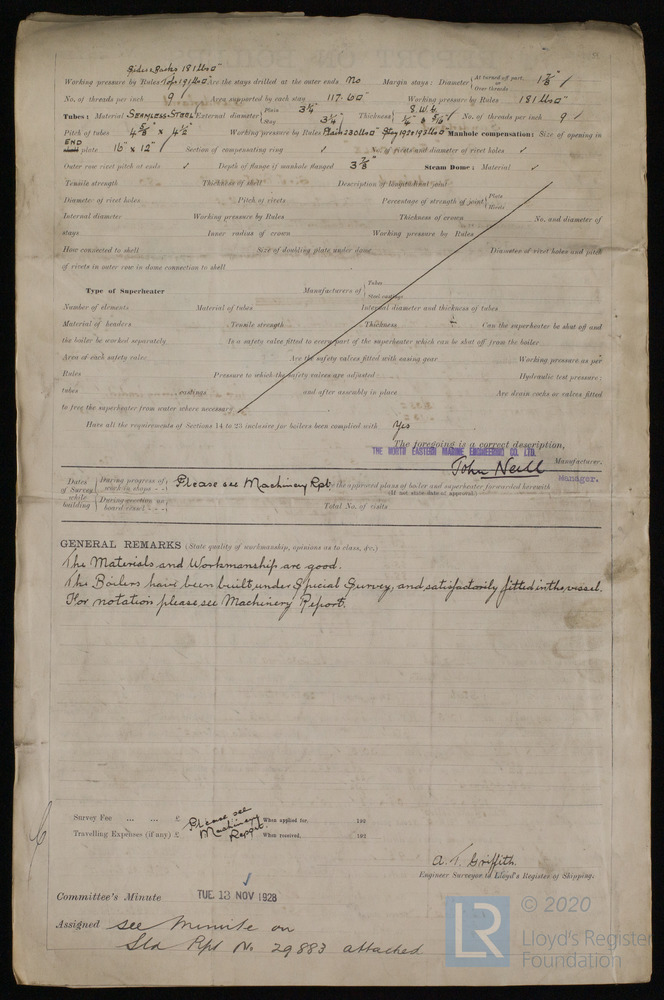 Sides & Backs 181 lbs □"
Working pressure by Rules Top 191 lbs □" Are the stays drilled at the outer ends No Margin stays: Diameter { At turned off part, or Over threads 1 7/8" ✓
No. of threads per inch 9 Area supported by each stay 117.60 □" Working pressure by Rules 181 lbs □"
Tubes: Material SEAMLESS-STEEL External diameter { Plain 3 1/4" Stay 3 1/4" Thickness { 8 S.W.G. 1/4" & 5/16" ✓ No. of threads per inch 9 ✓
Pitch of tubes 4 5/8" x 4 1/2" Working pressure by Rules Manhole compensation: Size of opening in
END plate 16" x 12" ✓ Section of compensating ring ✓ No. of rivets and diameter of rivet holes ✓
Outer row rivet pitch at ends ✓ Depth of flange if manhole flanged 3 7/8" Steam Dome: Material ✓
Tensile strength Thickness of shell Description of longitudinal joint
Diameter of rivet holes Pitch of rivets Percentage of strength of joint { Plate Rivets
Internal diameter Working pressure by Rules Thickness of crown No. and diameter of
stays Inner radius of crown Working pressure by Rules
How connected to shell Size of doubling plate under dome Diameter of rivet holes and pitch
of rivets in outer row in dome connection to shell
Type of Superheater Manufacturers of { Tubes Steel castings
Number of elements Material of tubes Internal diameter and thickness of tubes
Material of headers Tensile strength Thickness Can the superheater be shut off and
the boiler be worked separately Is a safety valve fitted to every part of the superheater which can be shut off from the boiler
Area of each safety valve Are the safety valves fitted with easing gear Working pressure as per
Rules Pressure to which the safety valves are adjusted Hydraulic test pressure:
tubes castings and after assembly in place Are drain cocks or valves fitted
to free the superheater from water where necessary
Have all the requirements of Sections 14 to 23 inclusive for boilers been complied with Yes
The foregoing is a correct description,
THE NORTH EASTERN MARINE ENGINEERING CO. LTD.
John Neill Manufacturer.
Manager.
Dates of Survey while building { During progress of work in shops - - Please see Machinery Rpt. Are the approved plans of boiler and superheater forwarded herewith
(If not state date of approval.)
During erection on board vessel - - - Total No. of visits
GENERAL REMARKS (State quality of workmanship, opinions as to class, &c.)
The Materials and Workmanship are good.
The Boilers have been built under Special Survey, and satisfactorily fitted in the vessel.
For notation please see Machinery Report.
Survey Fee ... ... £ Please see Machinery Report. When applied for, 192
Travelling Expenses (if any) £ When received, 192
A. T. Griffith.
Engineer Surveyor to Lloyd's Register of Shipping.
Committee's Minute TUE. 13 NOV 1928
Assigned see minute on
Sld Rpt No. 29883 attached
LR
© 2020
Lloyd's Register
Foundation